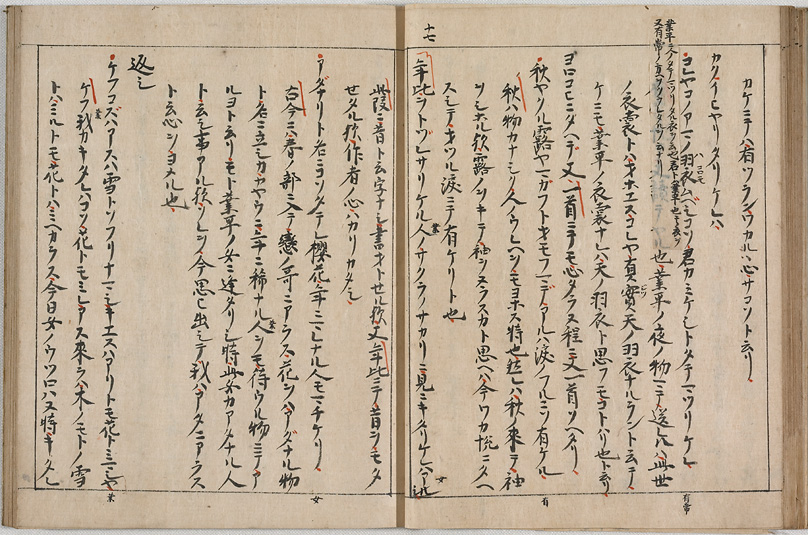 カケミチハ有ツランワカルヽ心サコソト云リ
カクイヒヤリタリケレハ
コレヤコノアマノ羽衣ムヘシコソ君カミケシトタテマツリケレ
有常
也業平ノ夜ノ物ニテ送レハ此世
ノ衣裳トハオホエスコレヤ真實天ノ羽衣ナルラント云テ
ケニモ業平ノ衣裳ナレハ天ノ羽衣ト思フモコトハリ也ト云リ
ヨロコヒニタヘテ又一首ニテモ心タラヌ程ニ又一首ソヘタリ
秋ヤクル露ヤマカフトオモフマテアルハ涙ノフルニソ有ケル
有
秋ハ物カナシク人ノウレヘヲモヨホス時也然レハ秋ノ來テ袖
歟露ノシキテ袖ヲヌラスカト思ヘハ今ワカ悦ニタヘ
スシテオツル涙ニテ有ケリト也
年比ヲトヅレサリケル人ノサクラノサカリニ見ニキタリケレハ
十七
此段ニ昔ト云字ナシ書オトセル歟又年比ニテ昔ヲモタ
セタル歟作者ノ心ハカリカタシ
アダナリト名ニコソタテレ櫻花年ニマレナル人モマチケリ
女
古今ニハ春ノ部ニ入テ戀ノ哥ニアラス花ヲハアダナル物
ト名ニ立シカカヤウニ年ニ稀ナル人ヲモ待ウル物ニテア
ルヨト云リモト業平ノ女ニ逢タリシ時此女カアタナル人
ト云シ事アル歟ソレヲ今思ヒ出シテ我ハアダニアラス
ト云心ヲヨメル也
返シ
ケフコズハアスハ雪トソフリナマシキエスハアリトモ花トミマシヤ
業
ケフ我カキタレハコソ花トモミレアス來ラハ木ノモトノ雪
トハミルトモ花トハミヘカラス今日女ノウツロハヌ時キタレ